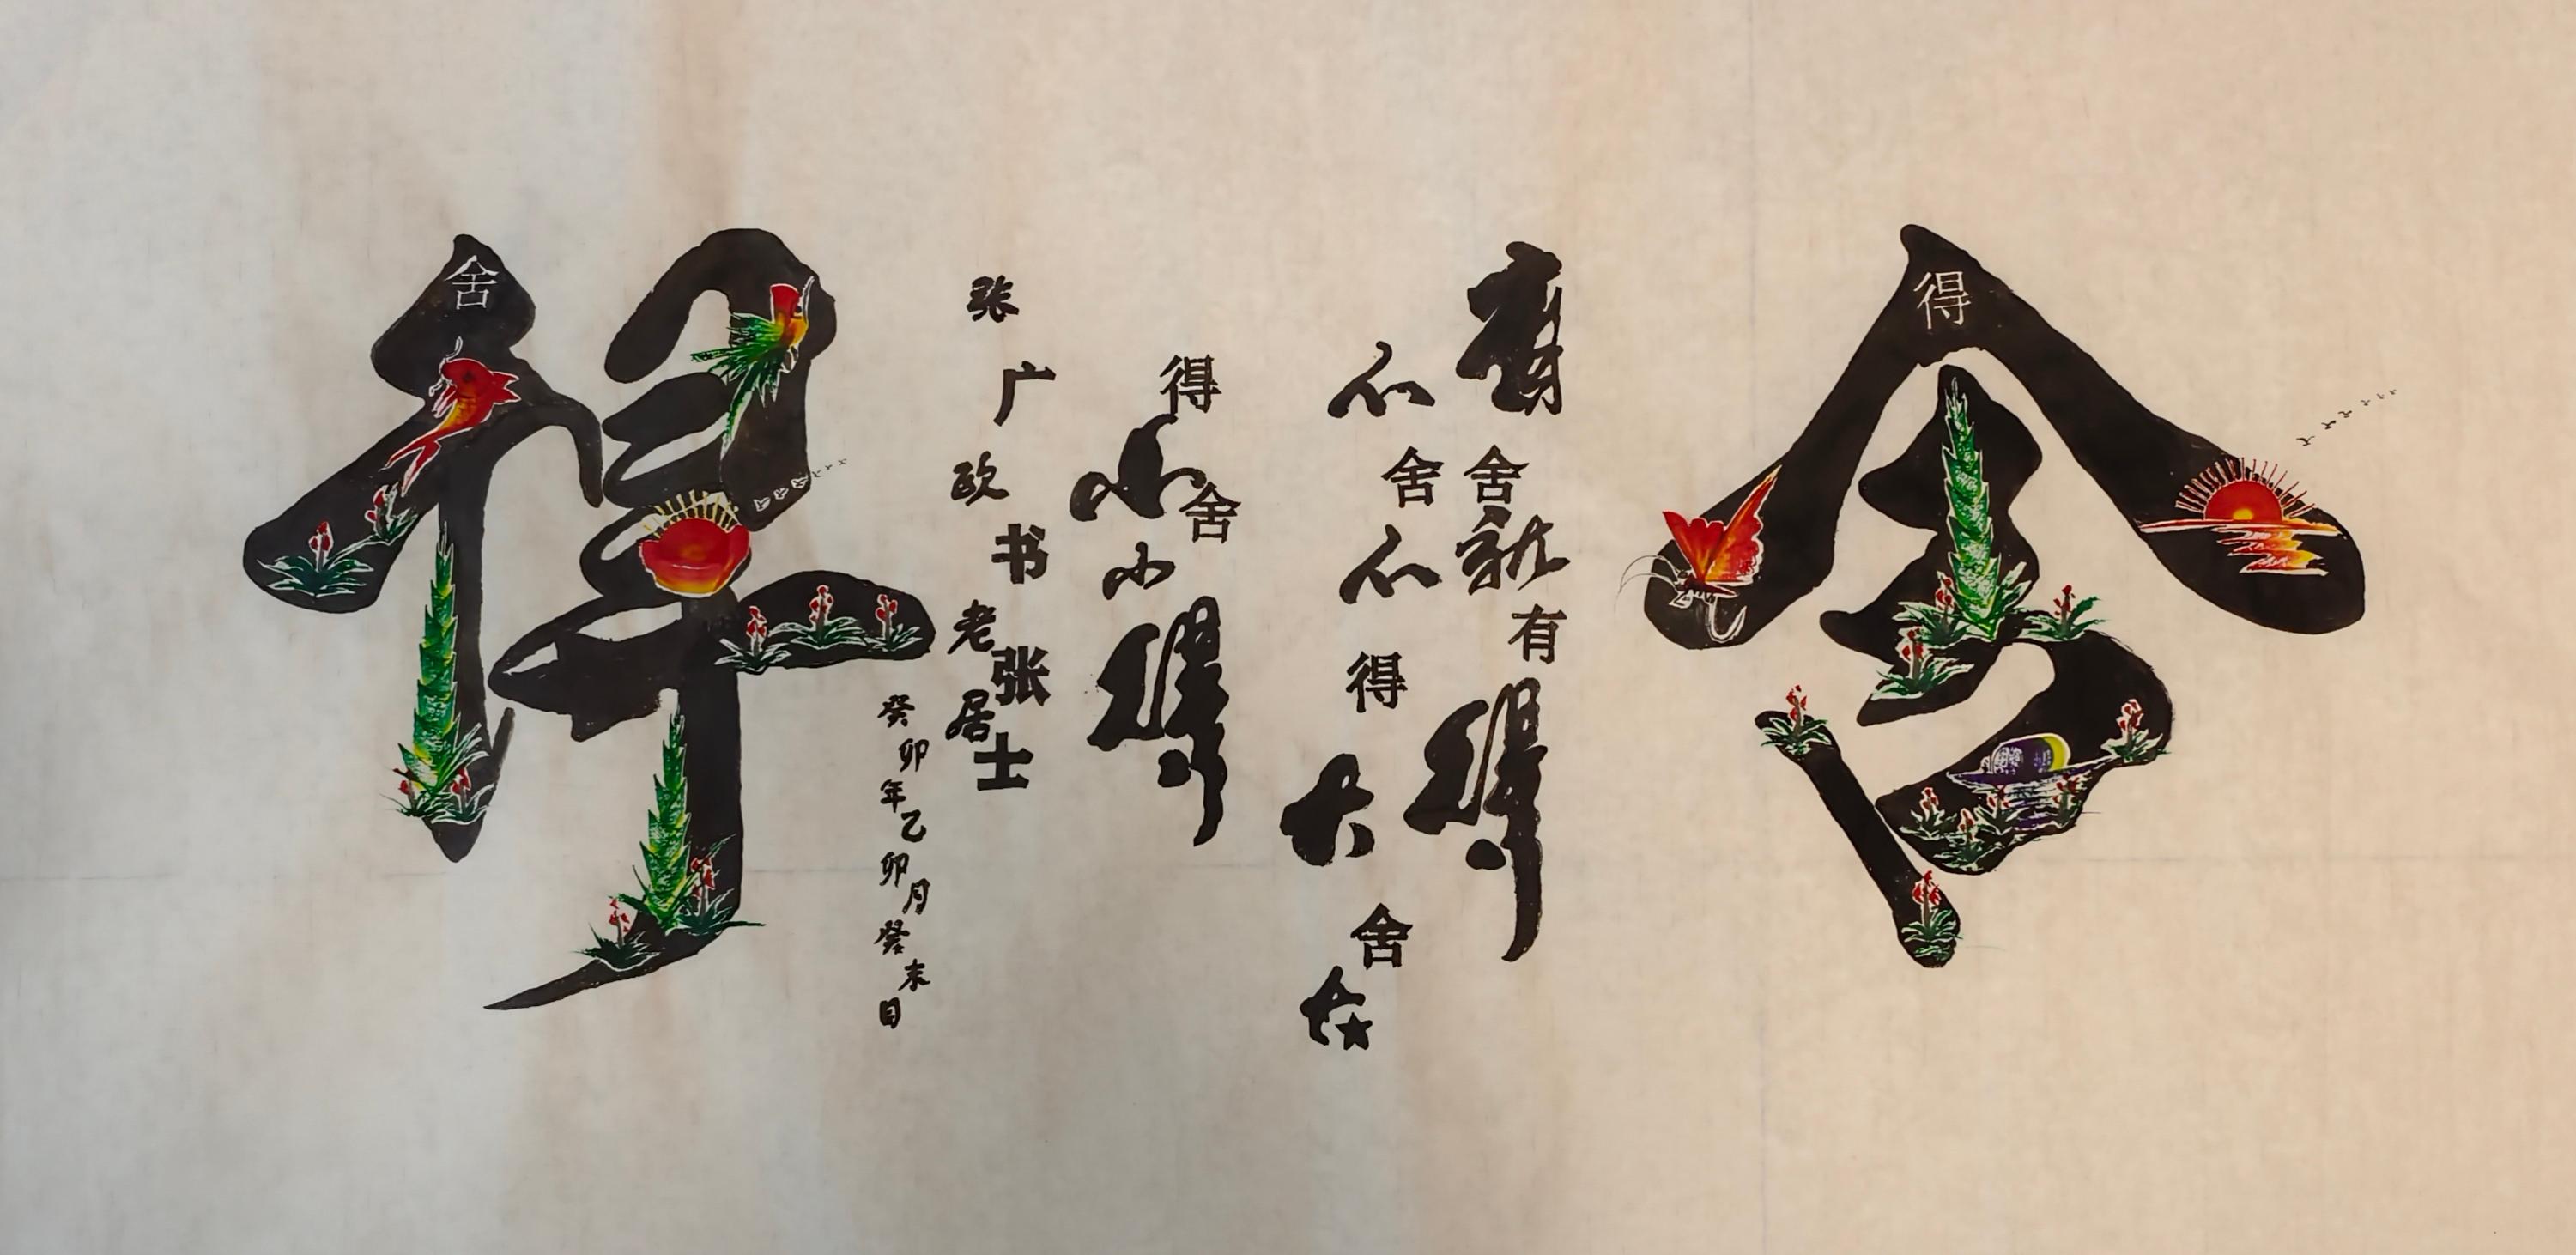 舍
得
有舍就有得
不舍不得大舍大
得小舍小得
张广欧书老张居士
癸卯年乙卯月癸未日
得
舍